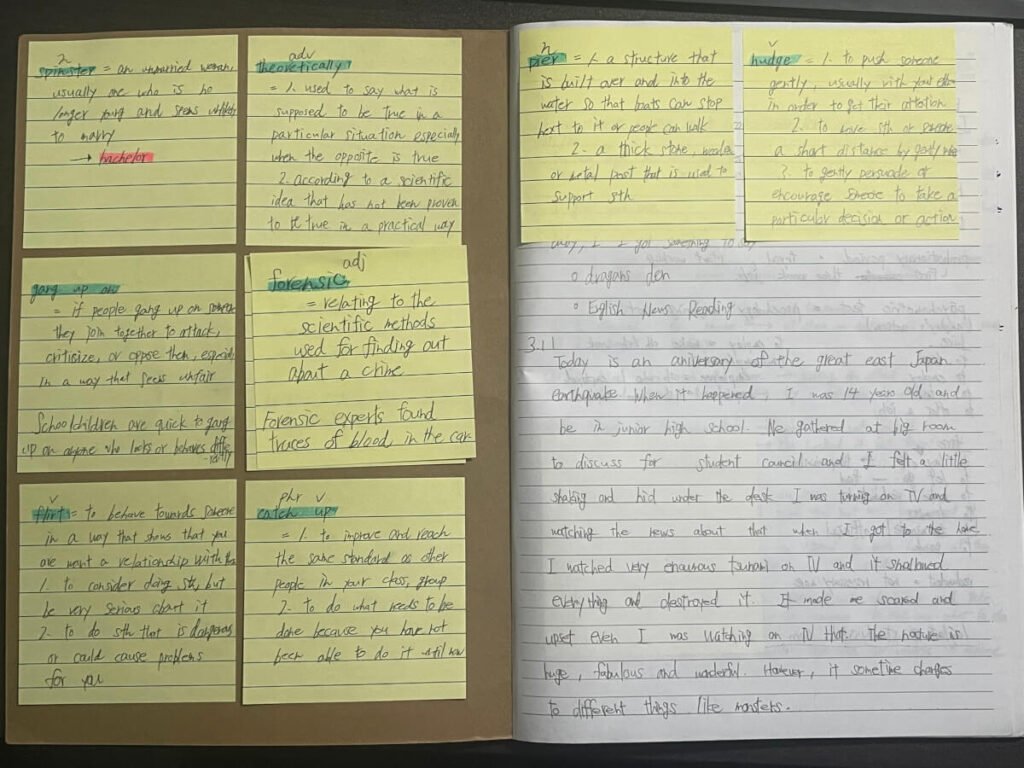 n
spinster = an unmarried woman,
usually one who is no
longer young and seems unlikely
to marry
→ bachelor
adv
theoretically
= 1. used to say what is
supposed to be true in a
particular situation especially
when the opposite is true
2. according to a scientific
idea that has not been proven
to be true in a practical way
gang up on
= if people gang up on someone
they join together to attack,
criticize, or oppose them, especially
in a way that seems unfair
Schoolchildren are quick to gang
up on anyone who looks or behaves differently
adj
forensic
= relating to the
scientific methods
used for finding out
about a crime
Forensic experts found
traces of blood in the car
v
flirt = to behave towards someone
in a way that shows that you
are want a relationship with them
1. to consider doing sth, but
be very serious about it
2. to do sth that is dangerous
or could cause problems
for you
phr v
catch up
= 1. to improve and reach
the same standard as other
people in your class, group
2. to do what needs to be
done because you have not
been able to do it until now
n
pier = 1. a structure that
is built over and into the
water so that boats can stop
next to it or people can walk
2. a thick stone, wooden
or metal post that is used to
support sth
v
nudge = 1. to push someone
gently, usually with your elbow
in order to get their attention
2. to move sth or someone
a short distance by gently
3. to gently persuade or
encourage someone to take a
particular decision or action
I got something to
o dragans den
o English News Reading
3.11
Today is an aniversary of the great east Japan
earthquake When it happened, I was 14 years old and
be in junior high school. We gathered at big room
to discuss for student council and I felt a little
shaking and hid under the desk I was turning on TV and
watching the news about that when I got to the home
I watched very enormous tsunami on TV and it shallowed
everything and destroyed it. It made me scared and
upset even I was watching on TV that. The nature is
huge, fabulous and wonderful. However, it sometime changes
to different things like monsters.